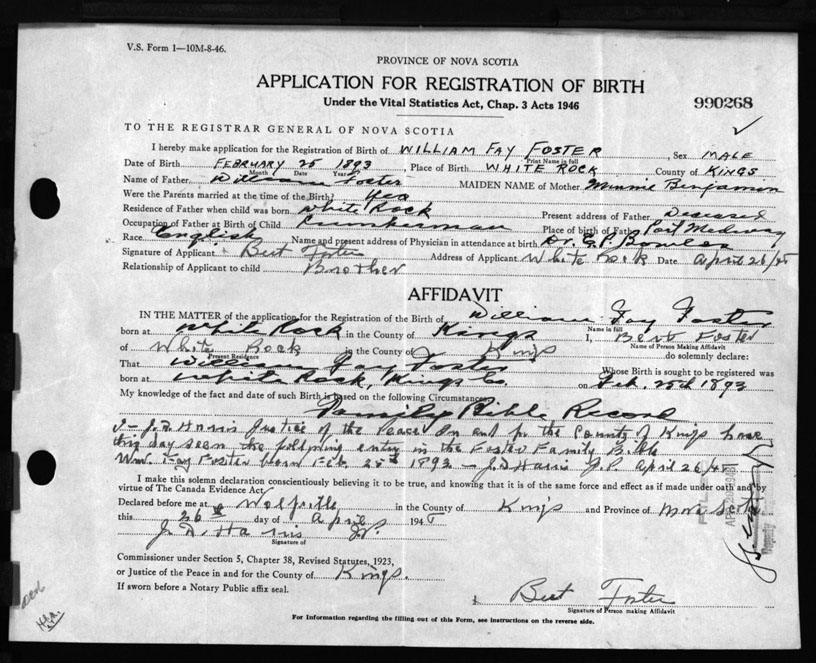 V.S. Form 1—10M-8-46.
PROVINCE OF NOVA SCOTIA
APPLICATION FOR REGISTRATION OF BIRTH
Under the Vital Statistics Act, Chap. 3 Acts 1946
990268
TO THE REGISTRAR GENERAL OF NOVA SCOTIA
I hereby make application for the Registration of Birth of WILLIAM FAY FOSTER, Sex MALE
Print Name in full
Date of Birth FEBRUARY 25 1893, Place of Birth WHITE ROCK County of KINGS
Month Date Year
Name of Father William Foster MAIDEN NAME of Mother Minnie Benjamin
Were the Parents married at the time of the Birth? Yes
Residence of Father when child was born White Rock Present address of Father Deseased
Occupation of Father at Birth of Child Place of birth of Father Port Medway
Race English Name and present address of Physician in attendance at birth Dr.
Signature of Applicant Bert Foster Address of Applicant White Rock Date April 26/48
Relationship of Applicant to child Brother
AFFIDAVIT
IN THE MATTER of the application for the Registration of the Birth of William Fay Foster
Name in full
born at White Rock in the County of Kings I, Bert Foster
Name of Person Making Affidavit
of White Rock in the County of Kings do solemnly declare:
Present Residence
That William Fay Foster Whose Birth is sought to be registered was
born at White Rock, Kings Co. on Feb. 25th 1893
My knowledge of the fact and date of such Birth is based on the following Circumstances
Family Bible Record
I – J.D. Harris Justice of the Peace In and for the County of Kings have
this day seen the following entry in the Foster Family Bible
Wm. Fay Foster born Feb. 25th 1893 – J.D. Harris J.P. April 26/48
I make this solemn declaration conscientiously believing it to be true, and knowing that it is of the same force and effect as if made under oath and by
virtue of The Canada Evidence Act.
Declared before me at Wolfville in the County of Kings and Province of Nova Scotia
this 26th day of April 194
J. D. Harris J.P.
Signature of
Commissioner under Section 5, Chapter 38, Revised Statutes, 1923,
or Justice of the Peace in and for the County of Kings.
If sworn before a Notary Public affix seal.
Bert Foster
Signature of Person making Affidavit
For Information regarding the filling out of this Form, see instructions on the reverse side.